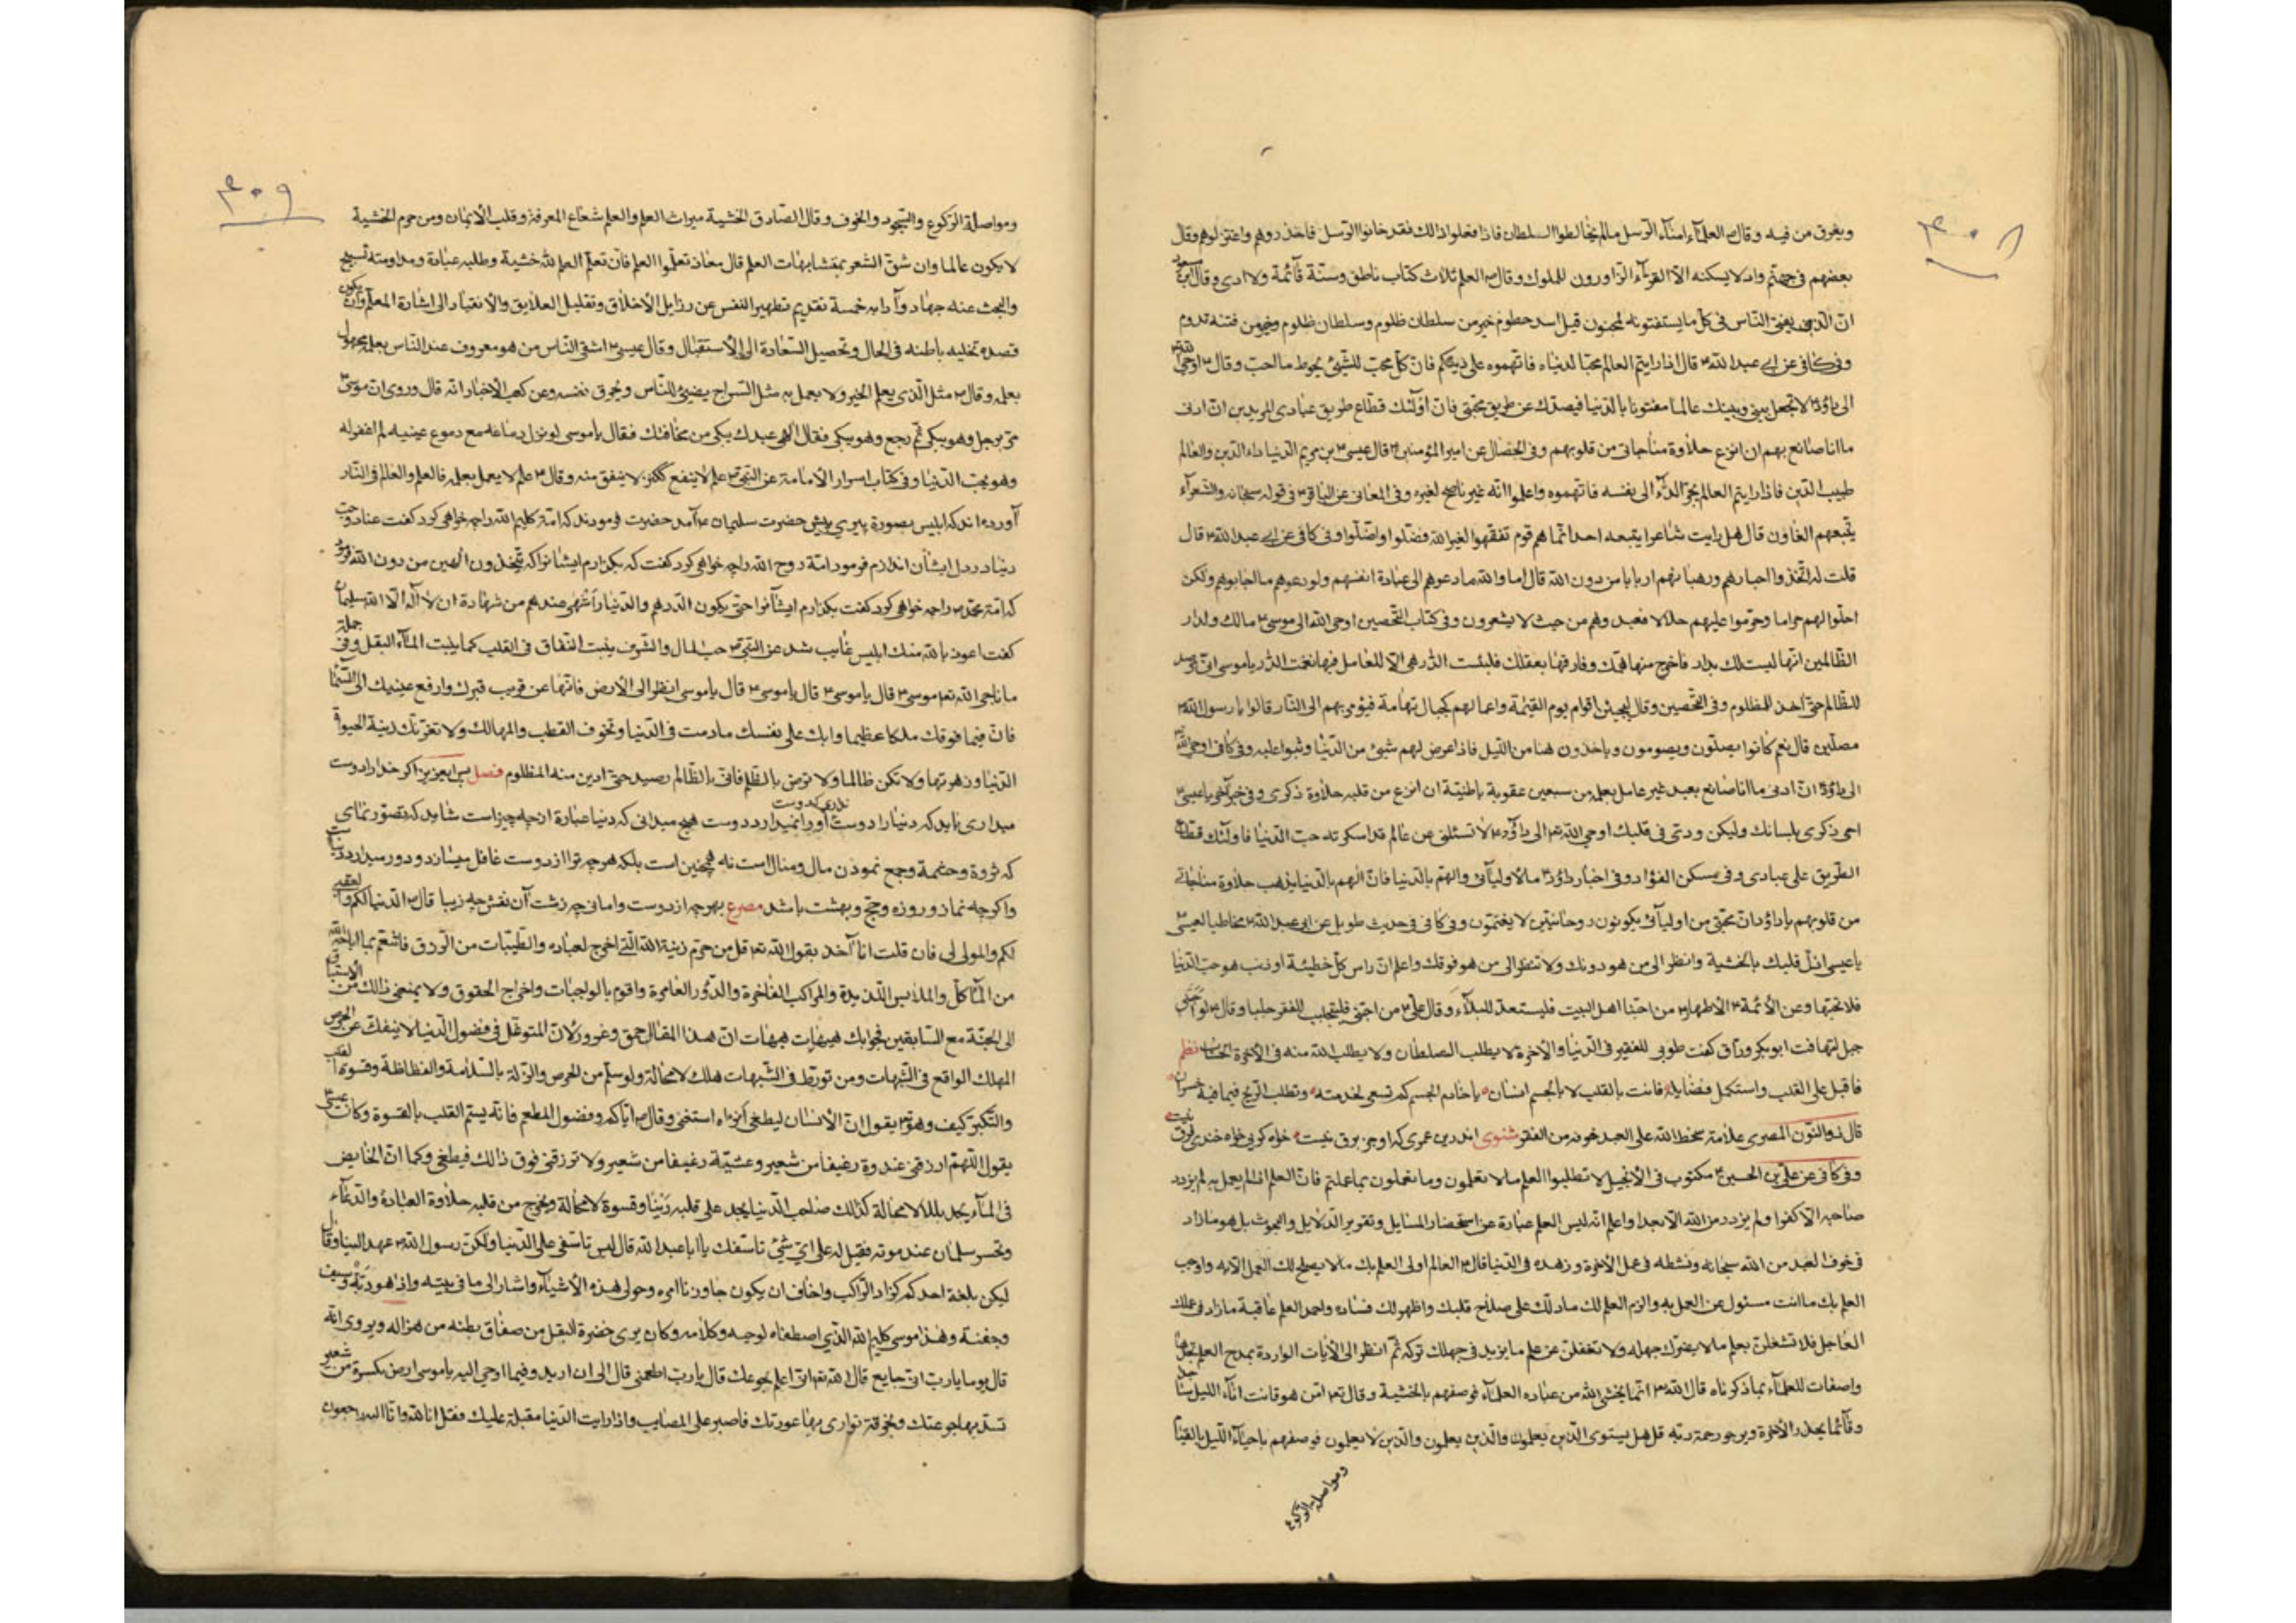 ٣٠٨
ويغرق من فيه وقال العلمآء امنآء الرّسل مالم يخالطوا السلطان فاذا فعلوا ذالك فقد خانوا الرّسل فاحذروهم واعتزلوهم وقال
بعضهم فى جهنّم واد لا يسكنه الّا القرّآء الزّاورون للملوك وقال العلم ثلاث كتاب ناطق وسنّة قآئمة ولا ادرى وقال ابن مسعود
انّ الّذى يفتى النّاس فى كلّ ما يستفتونه لمجنون قيل اسد حطوم خير من سلطان ظلوم وسلطان ظلوم وخير من فتنه تدوم
وفى كافى عن ابى عبد الله قال اذا رايتم العالم محبّا لدنياه فاتّهموه على دينكم فانّ كلّ محبّ للشّيئ يحوط ما احبّ وقال اوحى الله
الى داود لا تجعل بينى وبينك عالما مفتونا بالدّنيا فيصدّك عن طريق محبّتى فانّ اولٓئك قطّاع طريق عبادى المريدين انّ ادنى
ما انا صانع بهم ان انزع حلاوة مناجاتى من قلوبهم وفى الخصال عن امير المؤمنين قال عيسى بن مريم الدّنيا داء الدّين والعالم
طبيب الدّين فاذا رايتم العالم يجرّ الدّآء الى نفسه فاتّهموه واعلموا انّه غير ناصح لغيره وفى المعانى عن الباقر فى قوله سبحانه والشّعرآء
يتّبعهم الغاون قال هل رايت شاعرا يتبعه احد انّما هم قوم تفقّهوا لغير الله فضلّوا واضلّوا وفى كافى عن ابى عبد الله قال
قلت له اتّخذوا احبارهم ورهبانهم اربابا من دون الله قال اما والله ما دعوهم الى عبادة انفسهم ولو دعوهم ما اجابوهم ولكن
احلّوا لهم حراما وحرّموا عليهم حلالا فعبدوهم من حيث لا يشعرون وفى كتاب التّحصين اوحى الله الى موسى مالك ولدار
الظّالمين انّها ليست لك بدار فاخرج منها همّك وفارقها بعقلك فلبئست الدّار هى الّا للعامل فيها فنعمت الدّار يا موسى انّى رصيد
للظّالم حتّى اٰخذ للمظلوم وفى التّحصين وقال ليجيئنّ اقوام يوم القيٰمة واعمالهم كجبال تهامة فيؤمر بهم الى النّار قالوا يا رسول الله
مصلّين قال نعم كانوا يصلّون ويصومون وياخذون هنا من اللّيل فاذا عرض لهم شيئ من الدّنيا وثبوا عليه وفى كافى اوحى الله
الى داود انّ ادنى ما انا صانع بعبد غير عامل بعلمه من سبعين عقوبة باطنيّة ان انزع من قلبه حلاوة ذكرى وفى خبر اٰخر يا عيسى
احى ذكرى بلسانك وليكن ودّى فى قلبك اوحى الله الى داود لا تسئلنّ عن عالم قد اسكرته حبّ الدّنيا فاولٓئك قطّاع
الطّريق على عبادى وفى مسكن الفؤاد وفى اخبار داود ما لاوليآئى والهمّ بالدّنيا فانّ الهم بالدّنيا يذهب حلاوة مناجاتى
من قلوبهم يا داود انّ محبّتى من اوليآئى يكونون روحانيّين لا يغتمّون وفى كافى فى حديث طويل عن ابى عبد الله مخاطبا لعيسى
يا عيسى اذلّ قلبك بالخشية وانظر الى من هو دونك ولا تنظر الى من هو فوقك واعلم انّ راس كلّ خطيئة او ذنب هو حبّ الدّنيا
فلا تحبّها وعن الأئمّة الأطهار من احبّنا اهل البيت فليستعدّ للبلآء وقال علىّ من احبّنى فليتجلبب للفقر جلبابا وقال لو احبّنى
جبل لتهافت ابو بكر ورّاق گفت طوبى للفقير فى الدّنيا والاخرة لا يطلب السلطان ولا يطلب الله منه فى الاخرة الحساب نظم
فاقبل على القلب واستكمل فضايله فانت بالقلب لا بالجسم انسان يا خادم الجسم كم تسعى لخدمته وتطلب الرّبح فيما فيه خسران
قال ذو النّون المصرى علامة سخط الله على العبد خوفه من الفقر مثنوى اندرين عمرى كه او جز برق نيست خواه گريى خواه خندى فرق نيست
وفى كافى عن علىّ بن الحسين مكتوب فى الانجيل لا تطلبوا العلم ما لا تعلمون وما تعملون بما علمتم فانّ العلم اذا لم يعمل به لم يزدد
صاحبه الّا كفرا ولم يزدد من الله الّا بعدا واعلم انّه ليس العلم عبارة عن استحضار المسايل وتقرير الدّلايل والبحوث بل هو ما زاد
فى خوف العبد من الله سبحانه ونشطه فى عمل الاخرة وزهده فى الدّنيا قال العالم اولى العلم بك ما لا يصلح لك العمل الّا به واوجب
العلم بك ما انت مسئول عن العمل به والزم العلم لك ما دلّك على صلاح قلبك واظهر لك فساده واحمد العلم عاقبة ما زاد فى عملك
العاجل فلا تشغلنّ بعلم ما لا يضرّك جهله ولا تغفلنّ عن علم ما يزيد فى جهلك تركه ثمّ انظر الى الاٰيات الواردة بمدح العلم تجدها
واصفات للعلمآء بما ذكرناه قال الله انّما يخشى الله من عباده العلمآء فوصفهم بالخشية وقال امّن هو قانت انآء اللّيل ساجدا
وقآئما يحذر الاخرة ويرجو رحمة ربّه قل هل يستوى الّذين يعلمون والّذين يعلمون والّذين لا يعلمون فوصفهم باحيآء اللّيل بالقيام
ومواصلة الرّكوع
٣٠٩
ومواصلة الرّكوع والسّجود والخوف وقال الصّادق الخشية ميراث العلم والعلم شعاع المعرفة وقلب الأيمان ومن حرم الخشية
لا يكون عالما وان شقّ الشّعر بمتشابهات العلم قال معاذ تعلّموا العلم فانّ تعلّم العلم لله خشية وطلبه عبادة ومداومته تسبيح
والبحث عنه جهاد وآدابه خمسة تقديم تطهير النفس عن رزايل الأخلاق وتقليل العلايق والأنقياد الى اشارة المعلّم وان يكون
قصده تخليه باطنه فى الحال وتحصيل السّعادة الى الأستقبال وقال عيسى اشقى النّاس من هو معروف عند النّاس بعلمه مجهول
بعلمه وقال مثل الّذى يعلم الخير ولا يعمل به مثل السّراج يضيئ للنّاس ويحرق نفسه وعن كعب الأخبار انّه قال وروى ان موسى
مرّ برجل وهو يبكى ثمّ رجع وهو يبكى فقال الٰهى عبدك يبكى من مخافتك فقال يا موسى لو نزل دماغه مع دموع عينيه لم اغفر له
وهو يحبّ الدّنيا وفى كتاب اسرار الأمامة عن النّبى علم لا ينفع ككنز لا ينفق منه وقال علم لا يعمل بعلمه فالعلم والعالم فى النّار
آورده اند كه ابليس بصورة پيرى پيش حضرت سليمان آمد حضرت فرمودند كه امّة كليم الله را چه خواهى كرد گفت عناد وحب
دنيا در دل ايشان اندازم فرمود امّة روح الله را چه خواهى كرد گفت كه بگذارم ايشانرا كه يتّخذون الٰهين من دون الله فرمود
كه امّة محمّد را چه خواهى كرد گفت بگذارم ايشانرا حتّى يكون الدّرهم والدّينار اشهى عندهم من شهادة ان لا اله الّا الله سليمان
گفت اعوذ بالله منك ابليس غايب شد عن النّبى حبّ المال والشّرف ينبت النّفاق فى القلب كما ينبت المآء البقل وفى جملة
ما ناجى الله موسى قال يا موسى قال يا موسى قال يا موسى انظر الى الأرض فانّها عن قريب قبرك وارفع عينيك الى السّمآ
فانّ فيما فوقك ملكا عظيما وابك على نفسك ما دمت فى الدّنيا وتخوف العطب والمهالك ولا تغرّنّك زينة الحيوة
الدّنيا وزهرتها ولا تكن ظالما ولا ترض بالظّلم فانّى بالظّالم رصيد حتّى ادين منه المظلوم فصل پس ايعزيز اگر خدا را دوست
ميدارى بايد كه دنيا را دوست ندارى كه دوست او را نميدارد دوست هيچ ميدانى كه دنيا عبارة از چه چيز است شايد كه تصوّر نماى
كه ثروة وحشمة وجمع نمودن مال ومنال است نه همچنين است بلكه هر چه ترا از دوست غافل ميسازد ودور ميدارد دنياست
واگر چه نماز وروزه وحجّ وبهشت باشد مصرع بهر چه از دوست وامانى چه زشت آن نقش چه زيبا قال الدّنيا لكم والعقبى
لكم والمولى لى فان قلت انا آخذ بقول الله قل من حرّم زينة الله الّتى اخرج لعباده والطّيّبات من الرّزق فاتنعّم بما اباحه الله
من المآكل والملابس اللّذيذة والمراكب الفاخرة والدّور العامرة واقوم بالواجبات واخراج الحقوق ولا يمنعنى ذالك من الأستباق
الى الجنّة مع السّابقين فجوابك هيهات هيهات انّ هذا المقال حمق وغرور لانّ المتوغّل فى فضول الدّنيا لا ينفكّ عن الحرص
المهلك الواقع فى الشّبهات ومن تورّط فى الشّبهات هلك لا محالة ولو سلم من الحرص والزّلة بالسّلامة والفظاظة وقسوة القلب
والتّكبّر كيف وهو يقول انّ الأنسان ليطغى ان رٰاه استغنى وقال ايّاكم وفضول المطعم فانّه يسمّ القلب بالقسوة وكان عيسى
يقول اللّهمّ ارزقنى غدوة رغيفا من شعير وعشيّة رغيفا من شعير ولا ترزقنى فوق ذالك فيطغى وكما انّ الخايض
فى المآء يجد بللا لا محالة كذالك صاحب الدّنيا يجد على قلبه رَيْنا وقسوة لا محالة ويخرج من قلبه حلاوة العبادة والدّعآء
وتحسّر سلمان عند موته فقيل له على اىّ شيئ تاسّفك يا ابا عبد الله قال ليس تاسّفى على الدّنيا ولكنّ رسول الله عهد الينا وقال
ليكن بلغة احدكم كزاد الرّاكب واخاف ان يكون جاوزنا امره وحولى هذه الأشيآء واشار الى ما فى بيته واذا هو دَنّة وسيف
وجفنة وهذا موسى كليم الله الّذى اصطفاه لوحيه وكلامه وكان يرى خضرة البقل من صفاق بطنه من هزاله ويروى انّه
قال يوما يا ربّ انّى جايع قال الله انا اعلم بجوعك قال يا ربّ اطعمنى قال الى ان اريد وفيما اوحى اليه يا موسى ارض بكسرة من شعير
تسدّ بها جوعتك وبخرقة توارى بها عورتك فاصبر على المصايب واذا رايت الدّنيا مقبلة عليك فقل انا لله وانّا اليه راجعون